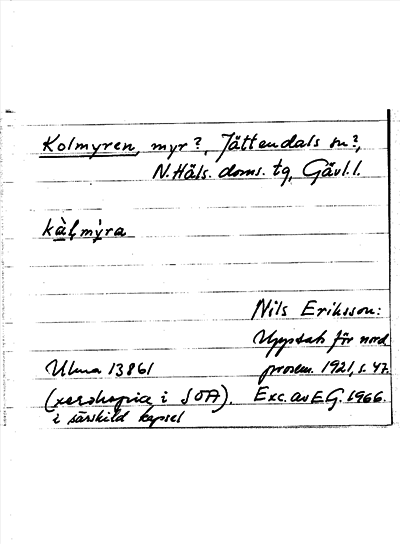 Kolmyren, myr?, Jättendals sn?,
N. Häls. doms. tg, Gävl. l.
kàl̥my̆ra
Nils Eriksson:
Uppsats för nord
Ulma 13861 prosem. 1921, s. 47.
(xerokopia i SOA). Exc. av E.G. 1966.
i särskild kapsel